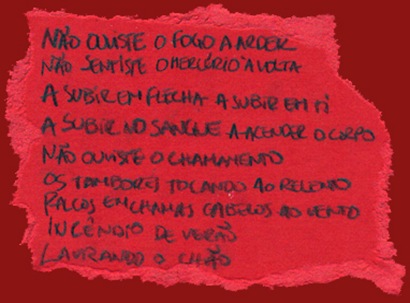 NÃO OUVISTE O FOGO A ARDER
NÃO SENTISTE O MERCÚRIO À VOLTA
A SUBIR EM FLECHA A SUBIR EM TI
A SUBIR NO SANGUE A ACENDER O CORPO
NÃO OUVISTE O CHAMAMENTO
OS TAMBORES TOCANDO AO RELENTO
PALCOS EM CHAMAS CABELOS AO VENTO
INCÊNDIO DE VERÃO
LAVRANDO O CHÃO